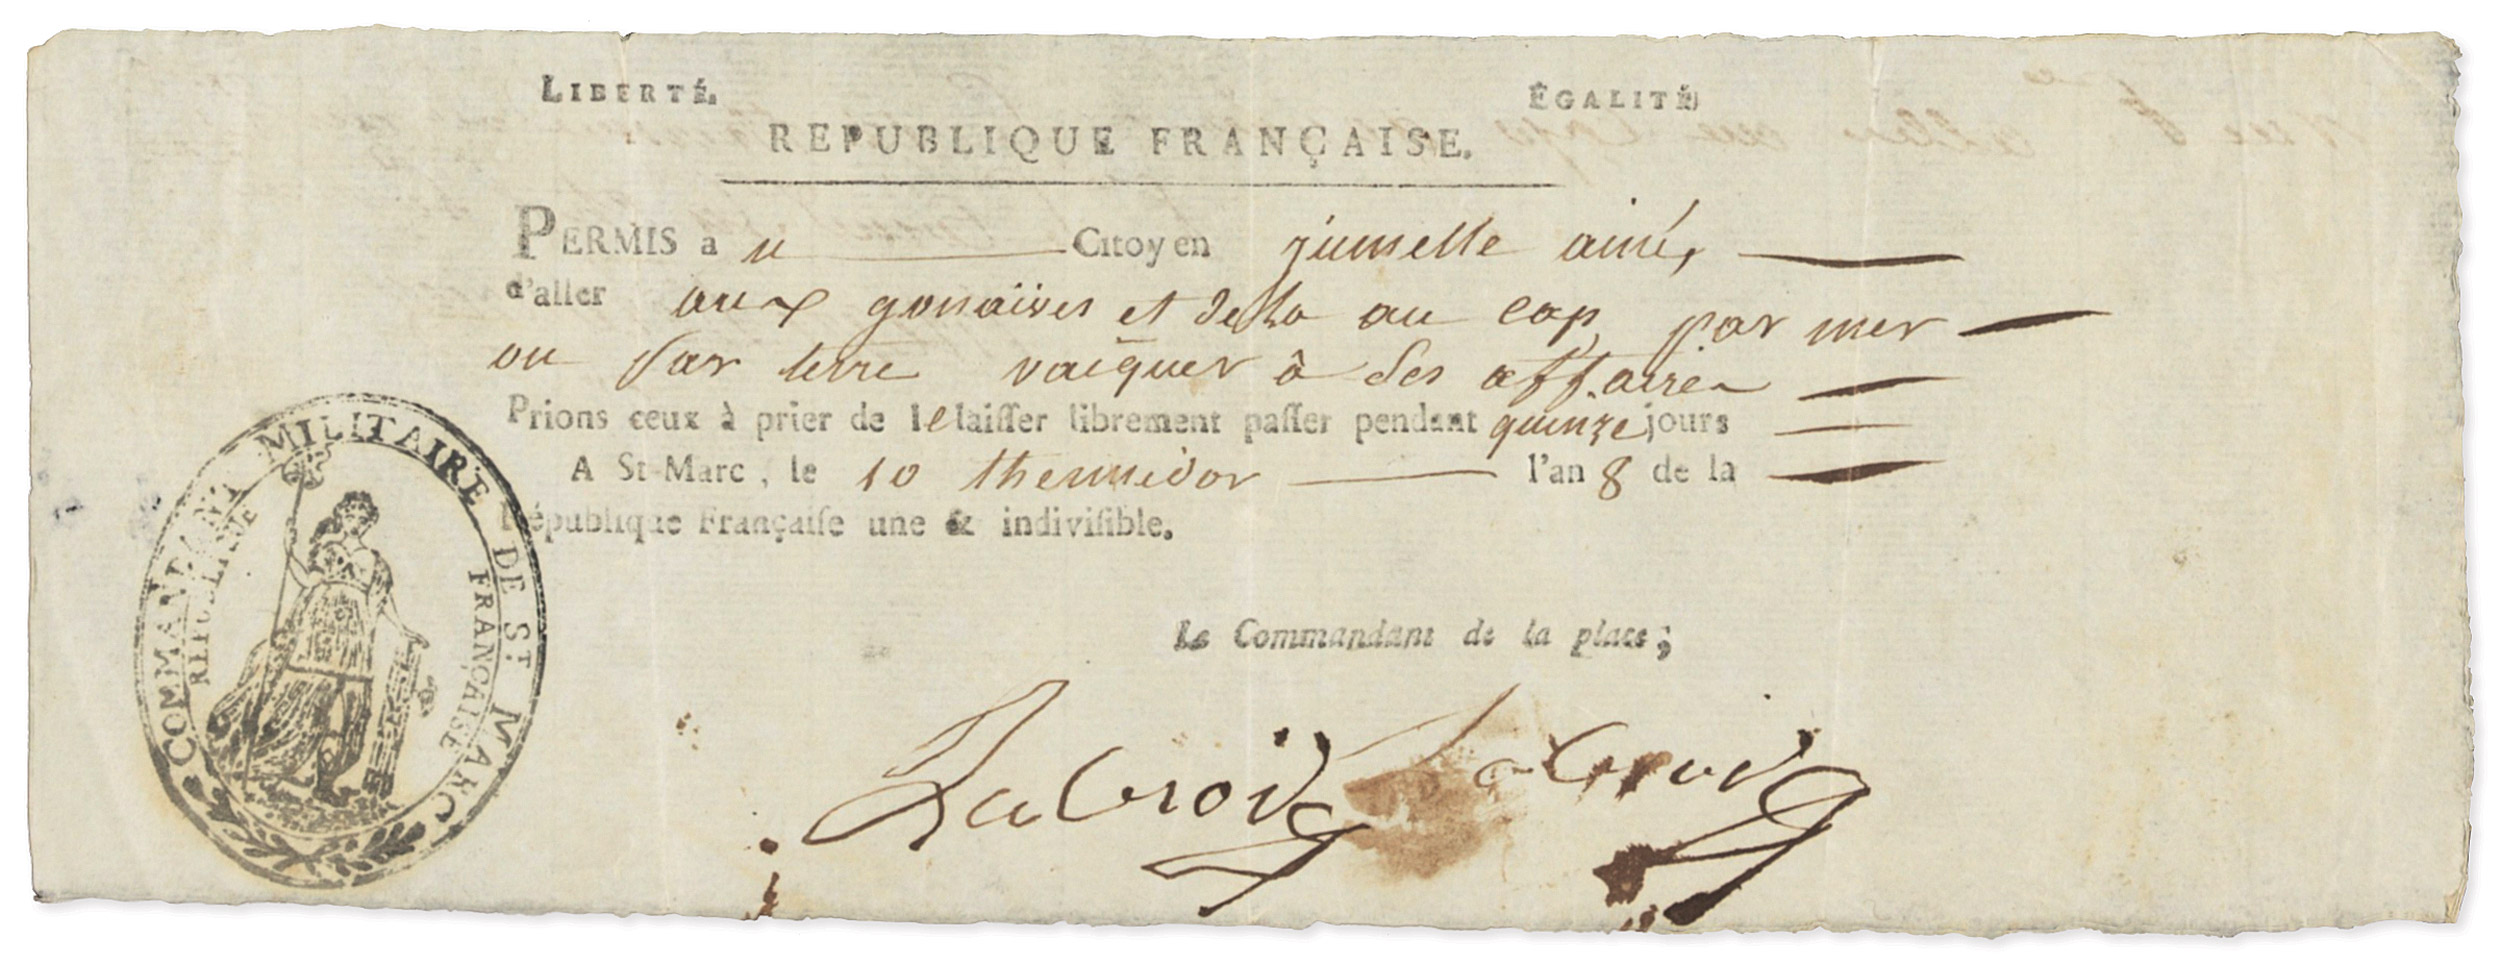 LIBERTÉ. ÉGALITÉ
REPUBLIQUE FRANÇAISE.
PERMIS a u Citoyen jumelle ainé,
d'aller aux gonaïves et de la au cap par mer
ou par terre vaiquer à ses affaires
Prions ceux à prier de le laiſſer librement paſſer pendant quinze jours
A St-Marc, le 10 thermidor l'an 8 de la
République Françaiſe une & indiviſible.
COMMANDANT MILITAIRE DE ST MARC
REPUBLIQUE FRANÇAISE
Le Commandant de la place;
LaCroix LaCroix